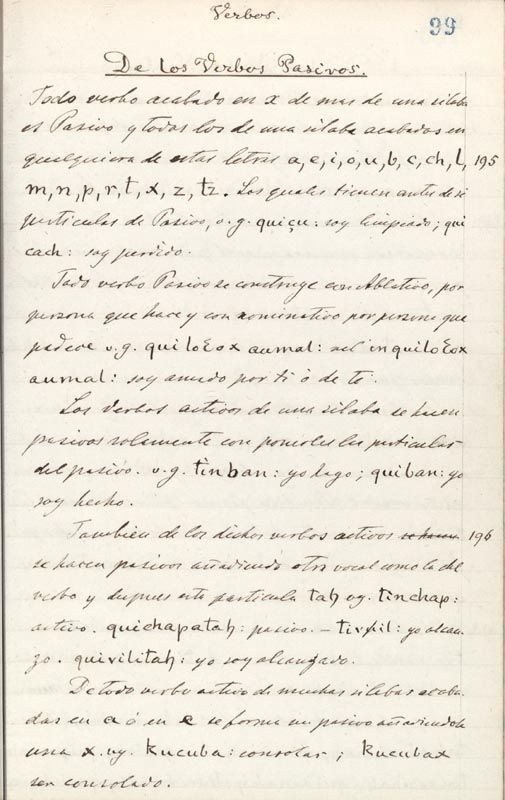 Verbos.
99
De los Verbos Pasivos.
Todo verbo acabado en x de mas de una silaba
es Pasivo y todos los de una silaba acabados en
qualquiera de estas letras a, e, i, o, u, b, c, ch, l, 195
m, n, p, r, t, x, z, tz. Los quales tienen antes de si
particulas de Pasivo, v.g. quiçu: soy limpiado; qui
cach: soy perdido.
Todo verbo Pasivo se construye con Ablativo, por
persona que hace y con nominativo por persona que
padece v.g. quiloƐox aumal: vel inquiloƐox
aumal: soy amado por ti ó de te.
Los Verbos activos de una silaba se hacen
pasivos solamente con ponerles las particulas
del pasivo. v.g. tinban: yo hago; quiban: yo
soy hecho.
Tambien de los dichos verbos activos se hacen 196
se hacen pasivos añadiendo otra vocal como la del
verbo y despues esta particula tah vg. tinchap:
activo. quichapatah: pasivo. – tivil: yo alcan
zo. quivilitah: yo soy alcanzado.
De todo verbo activo de muchas silabas acaba
das en a ó en e se forma un pasivo añadiendole
una x. vg. kucuba: consolar; kucubax
ser consolado.